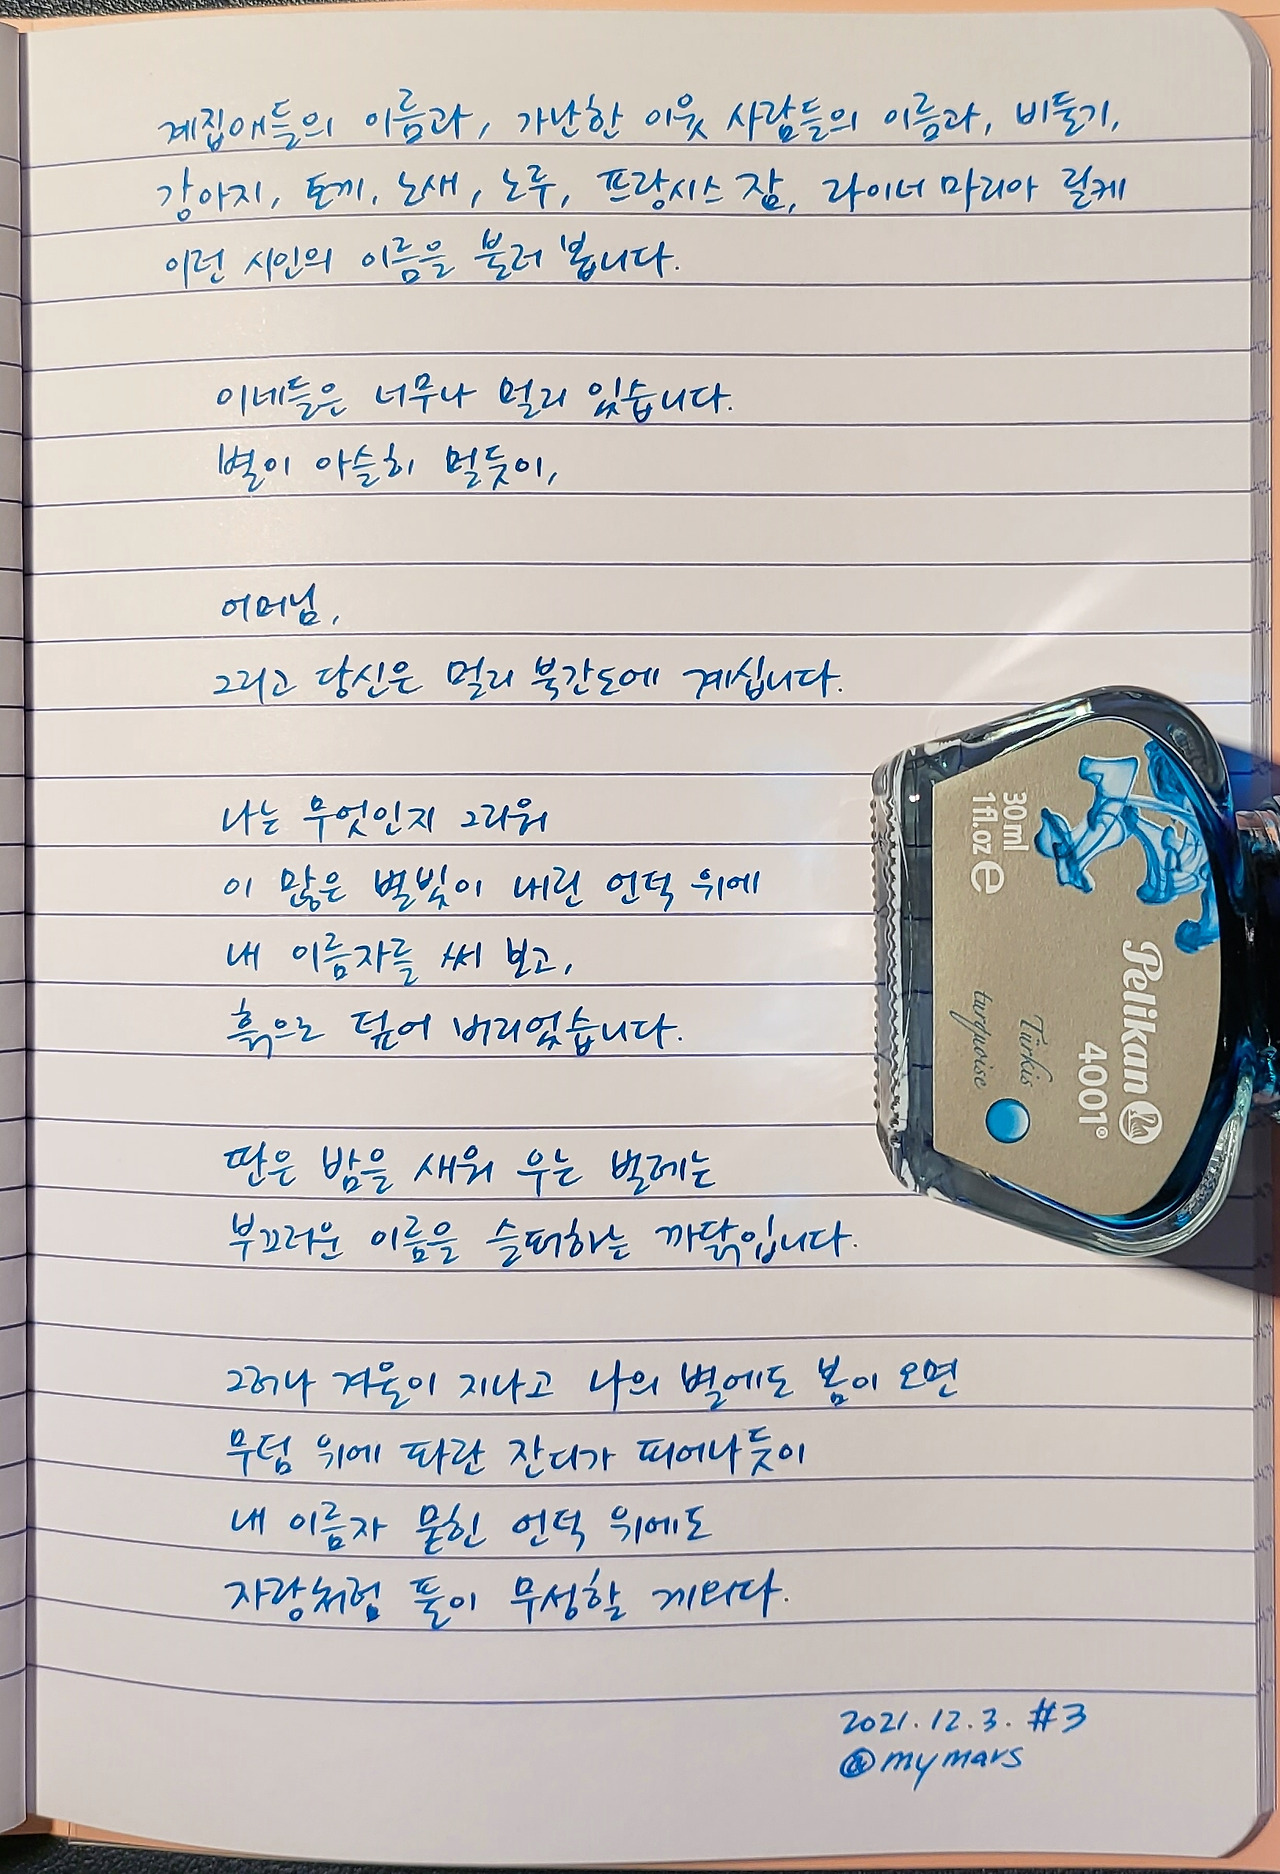 계집애들의 이름과, 가난한 이웃 사람들의 이름과, 비둘기,
강아지, 토끼, 노새, 노루, 프랑시스 잠, 라이너 마리아 릴케
이런 시인의 이름을 불러 봅니다.
이네들은 너무나 멀리 있습니다.
별이 아슬히 멀듯이,
어머님,
그리고 당신은 멀리 북간도에 계십니다.
나는 무엇인지 그리워
이 많은 별빛이 내린 언덕 위에
내 이름자를 써 보고,
흙으로 덮어 버리었습니다.
딴은 밤을 새워 우는 벌레는
부끄러운 이름을 슬퍼하는 까닭입니다.
그러나 겨울이 지나고 나의 별에도 봄이 오면
무덤 위에 파란 잔디가 피어나듯이
내 이름자 묻힌 언덕 위에도
자랑처럼 풀이 무성할 게외다.
2021.12.3. #3
@mymars
30 ml
1 fl.oz e
Pelikan
4001®
Türkis
turquoise